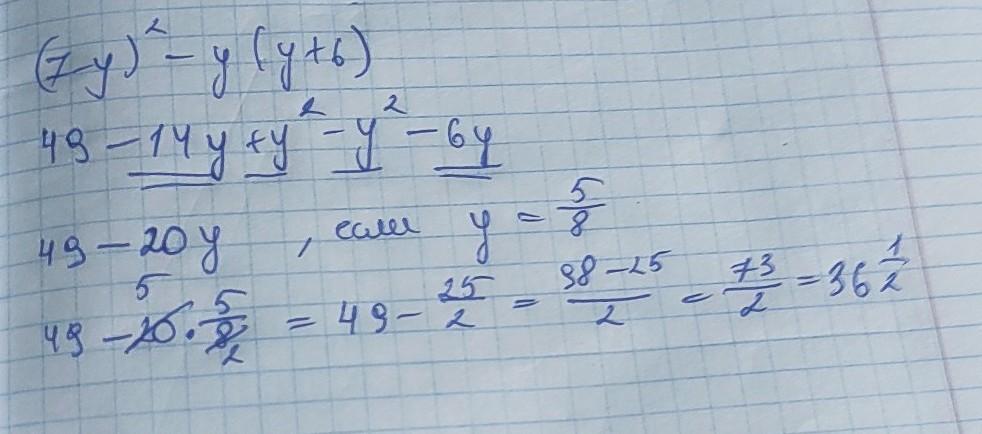 (7-y)² - y(y+6)
49 - 14y + y² - y² - 6y
49 - 20y , если y = 5/8
49 - 20 · 5/8 = 49 - 25/2 = (98-25)/2 = 73/2 = 36 1/2